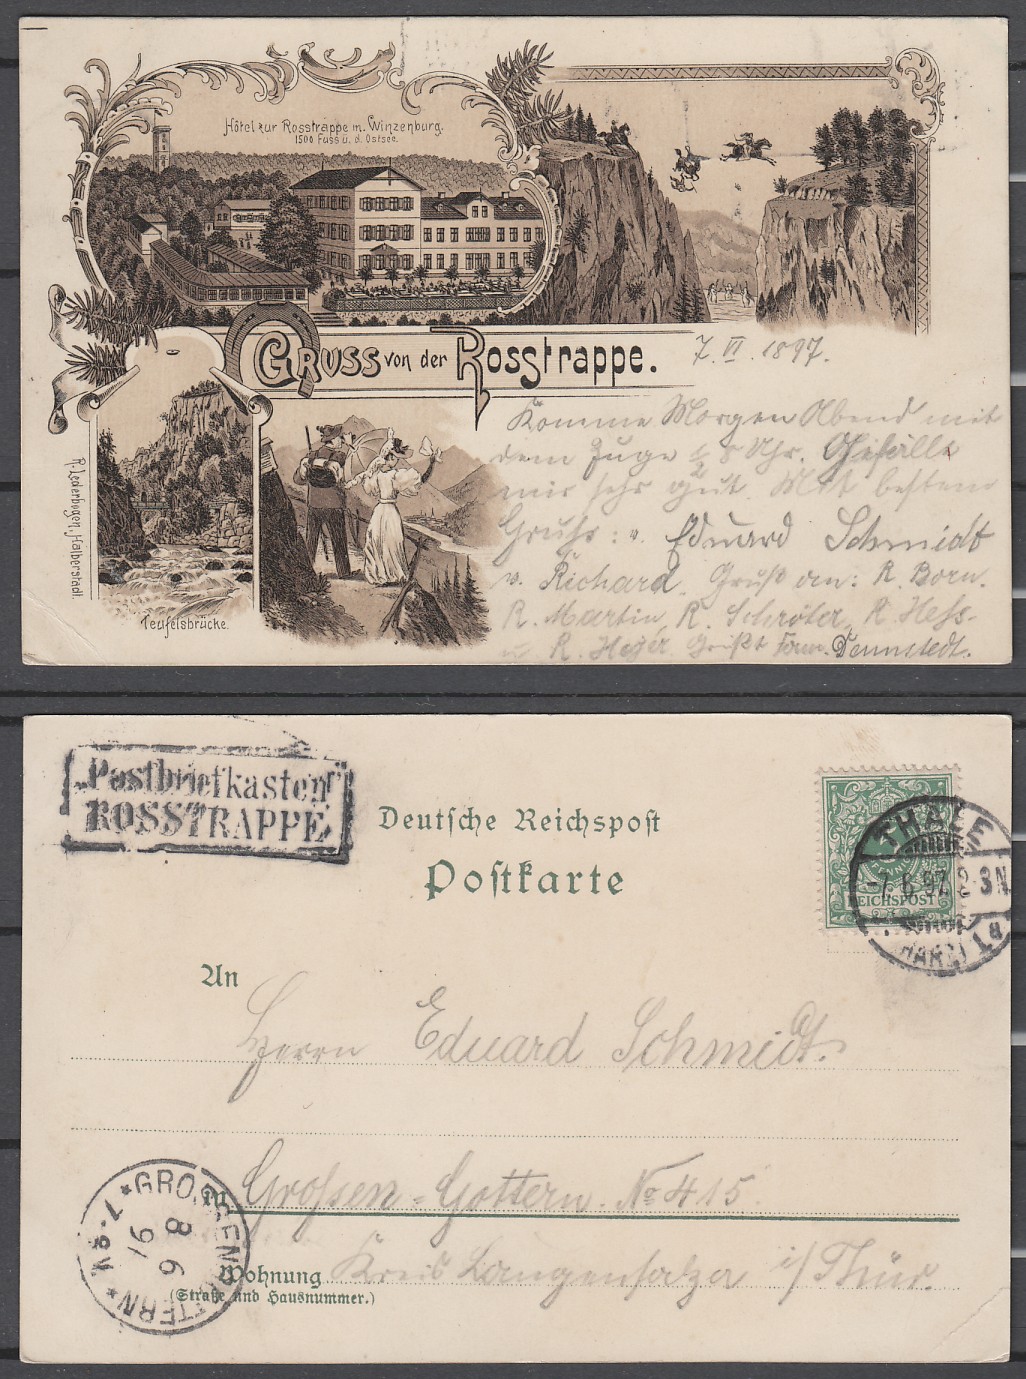 Hôtel zur Rosstrappe m. Winzenburg.
1500 Fuss ü. d. Ostsee.
GRUSS von der Rosstrappe.
7. VI. 1897.
Komme Morgen Abend mit
dem Zuge 8 Uhr. Gefällt
mir sehr gut. Mit bestem
Gruß: v. Eduard Schmidt
v. Richard. Gruß von: R. Born.
R. Martin, R. Schröter, R. Hess-
u. R. Heyer Grüßt Dennstedt.
R. Lederbogen, Halberstadt.
Teufelsbrücke.
„Postbriefkasten"
ROSSTRAPPE
Deutsche Reichspost
Postkarte
REICHSPOST
THALE
-7.6.97. 2-3N
(HARZ)
An
Herrn Eduard Schmidt.
in Grossen-Gottern. No 415.
Wohnung Kreis Langensalza i/Thür.
(Straße und Hausnummer.)
GROSSENGOTTERN
8 6
7-8V